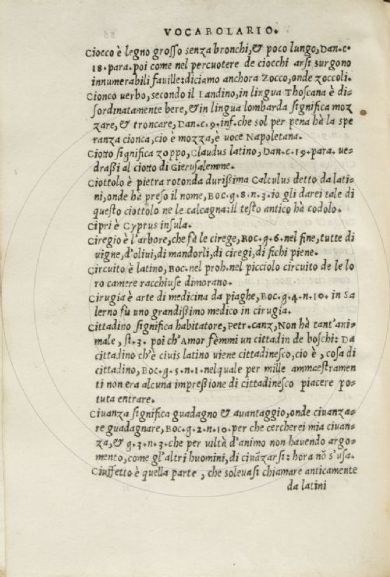 VOCABOLARIO.
Ciocco è legno grosso senza bronchi, & poco lungo, DAN.C.
18.para. poi come nel percuotere de ciocchi arsi surgono
innumerabili faville: diciamo anchora Zocco, onde zoccoli.
Cionco verbo, secondo il Landino, in lingua Thoscana è di-
sordinatamente bere, & in lingua lombarda significa moz
zare, & troncare, DAN.C.9.inf. che sol per pena hà la spe
ranza cionca, cio è mozza, è voce Napoletana.
Ciotto significa zoppo, Claudus latino, DAN.C.19.para. ve-
drassi al ciotto di Gierusalemme.
Ciottolo è pietra rotonda durissima Calculus detto da lati-
ni, onde hà preso il nome, BOC.g.8.n.3. io gli darei tale di
questo ciottolo ne le calcagna: il testo antico hà codolo.
Cipri è Cyprus insula.
Ciregio è l'arbore, che fà le cirege, BOC.g.6. nel fine, tutte di
vigne, d'olivi, di mandorli, di ciregi, di fichi piene.
Circuito è latino, BOC.nel proh. nel picciolo circuito de le lo
ro camere racchiuse dimorano.
Cirugia è arte di medicina da piaghe, BOC.g.4.n.10. in Sa
lerno fù uno grandissimo medico in cirugia.
Cittadino significa habitatore, PETR.canz, Non hà tant'ani-
male, st.3. poi ch'Amor femmi un cittadin de boschi: Da
cittadino ch'è civis latino viene cittadinesco, cio è, cosa di
cittadino, BOC.g.5.n.1. nel quale per mille ammaestramen
ti non era alcuna impressione di cittadinesco piacere po-
tuta entrare.
Civanza significa guadagno & avantaggio, onde civanza-
re guadagnare, BOC.g.2.n.10. per che cercherei mia civan-
za, & g.3.n.3. che per viltè d'animo non havendo argo-
mento, come gl'altri huomini, di civāzarsi: hora nō s'usa.
Ciuffetto è quella parte, che solevasi chiamare anticamente
da latini